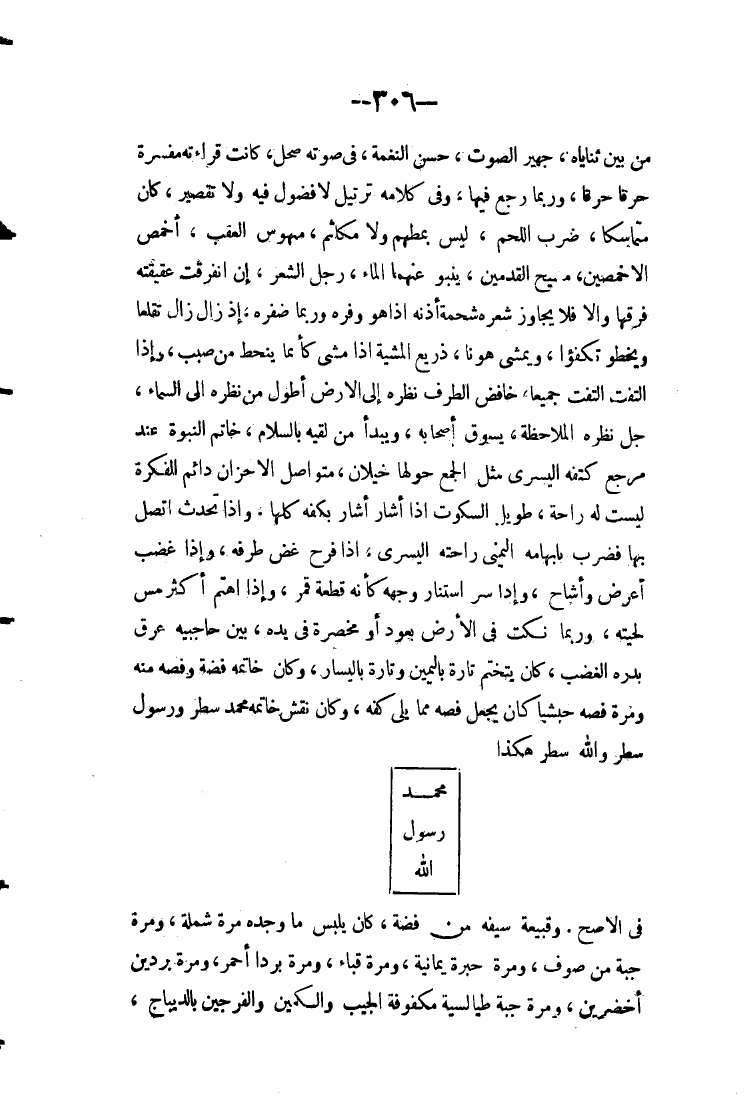 --٣٠٦—
من بين ثناياه، جهير الصوت، حسن النغمة، فى صوته صحل، كانت قراءته مفسرة
حرفا حرفا، وربما رجع فيها، وفى كلامه ترتيل لا فضول فيه ولا تقصير، كان
متماسكا، ضرب اللحم، ليس بمطهم ولا مكلثم، منهوس العقب، أخمص
الاخمصين، مسيح القدمين، ينبو عنهما الماء، رجل الشعر، إن انفرقت عقيقته
فرقها والا فلا يجاوز شعره شحمة أذنه اذا هو وفره وربما ضفره، إذ زال زال تقلعا
ويخطو تكفؤا، ويمشى هونا، ذريع المشية اذا مشى كأنما ينحط من صبب، وإذا
التفت التفت جميعا، خافض الطرف نظره إلى الارض أطول من نظره الى السماء،
جل نظره الملاحظة، يسوق أصحابه، ويبدأ من لقيه بالسلام، خاتم النبوة عند
مرجع كتفه اليسرى مثل الجمع حولها خيلان، متواصل الاحزان دائم الفكرة
ليست له راحة، طويل السكوت اذا أشار أشار بكفه كلها، واذا تحدث اتصل
بها فضرب بابهامه اليمنى راحته اليسرى، اذا فرح غض طرفه، وإذا غضب
أعرض وأشاح، وإدا سر استنار وجهه كأنه قطعة قمر، وإذا اهتم أكثر مس
لحيته، وربما نكت فى الأرض بعود أو مخصرة فى يده، بين حاجبيه عرق
يدره الغضب، كان يتختم تارة باليمين وتارة باليسار، وكان خاتمه فضة وفصه منه
ومرة فصه حبشيا كان يجعل فصه مما يلى كفه، وكان نقش خاتمه محمد سطر ورسول
سطر والله سطر هكذا
محمد
رسول
الله
فى الاصح. وقبيعة سيفه من فضة، كان يلبس ما وجده مرة شملة، ومرة
جبة من صوف، ومرة حبرة يمانية، ومرة قباء، ومرة بردا أحمر، ومرة بردين
أخضرين، ومرة جبة طيالسية مكفوفة الجيب والكمين والفرجين بالديباج،